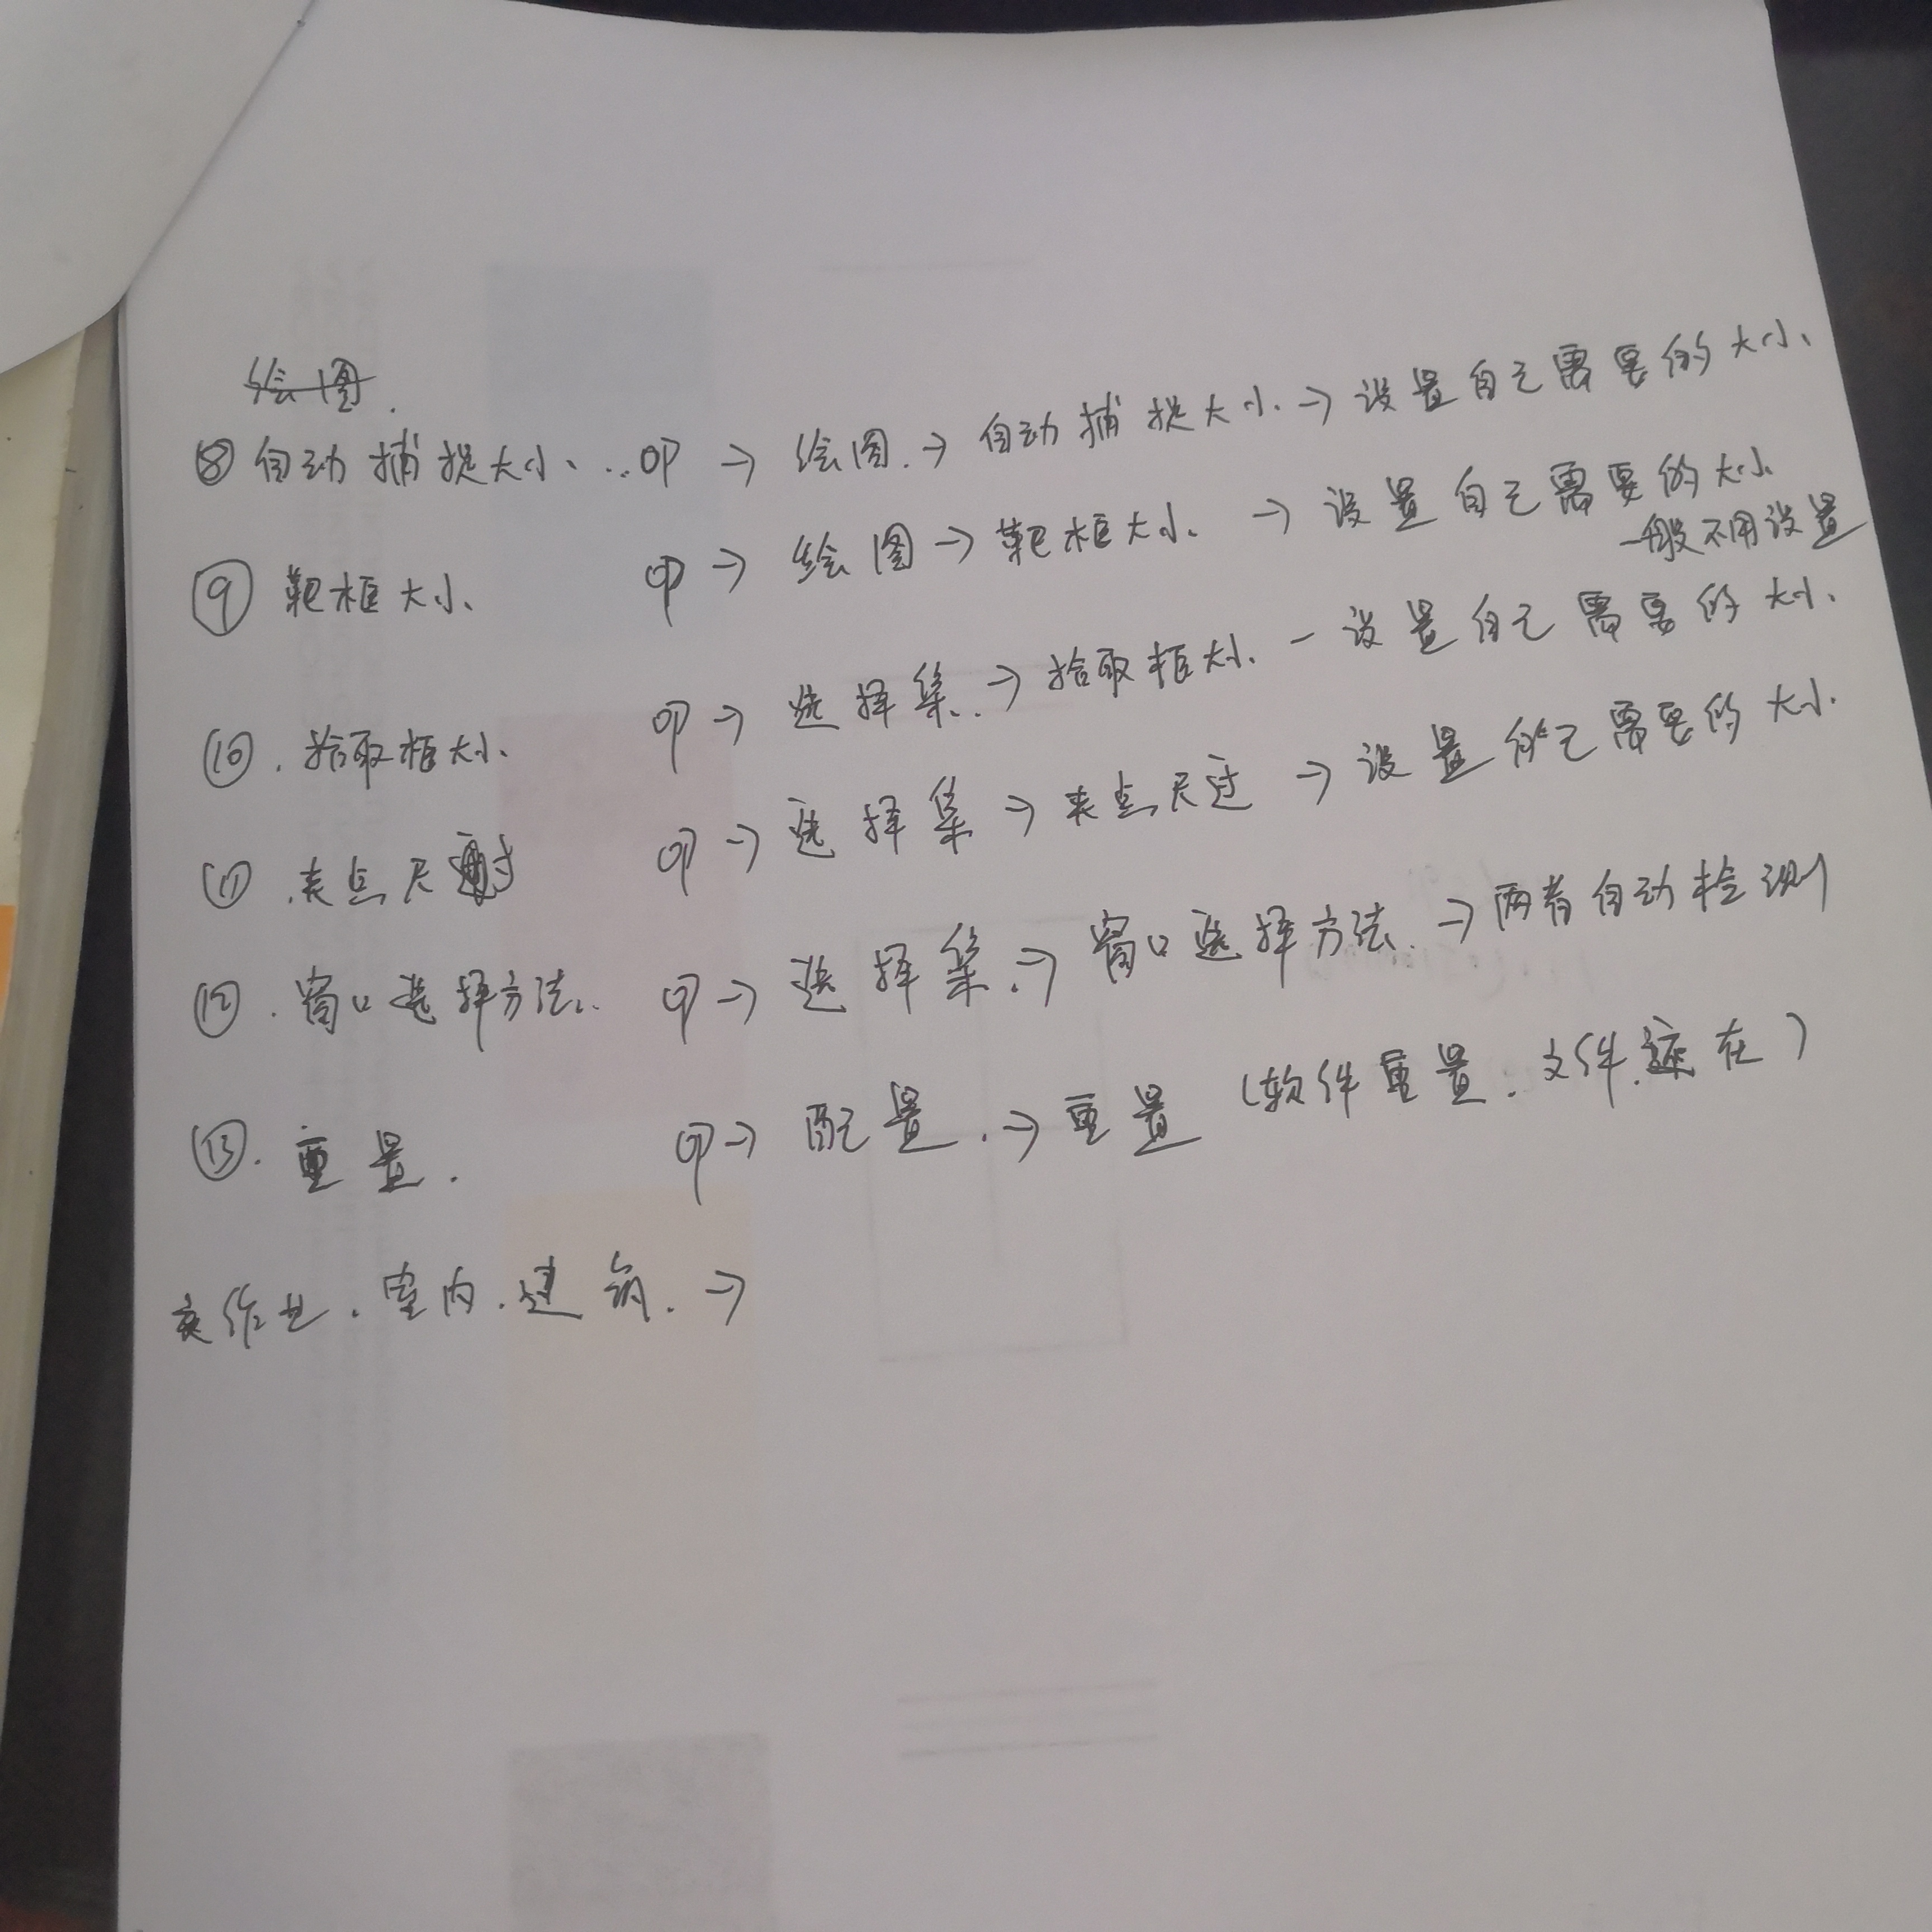 绘图.
⑧ 自动捕捉大小、..op → 绘图.→ 自动捕捉大小.→ 设置自己需要的大小、
⑨ 靶框大小、 op → 绘图 → 靶框大小、 → 设置自己需要的大小、
一般不用设置
⑩. 拾取框大小、 op → 选择集..→ 拾取框大小、一 设置自己需要的大小、
⑪ .夹点尺 op → 选择集 → 夹点尺过 → 设置自己需要的大小.
⑫. 窗口选择方法.. op → 选择集.→ 窗口选择方法.→ 两者自动检测
⑬. 重置. op → 配置.→ 重置 (软件重置.文件还在)
交作业.室内.建筑.→